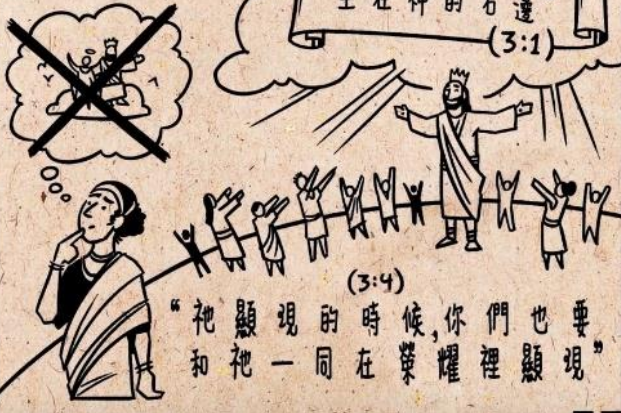 坐在神的右邊
(3:1)
(3:4)
“祂顯現的時候,你們也要
和祂一同在榮耀裡顯現”